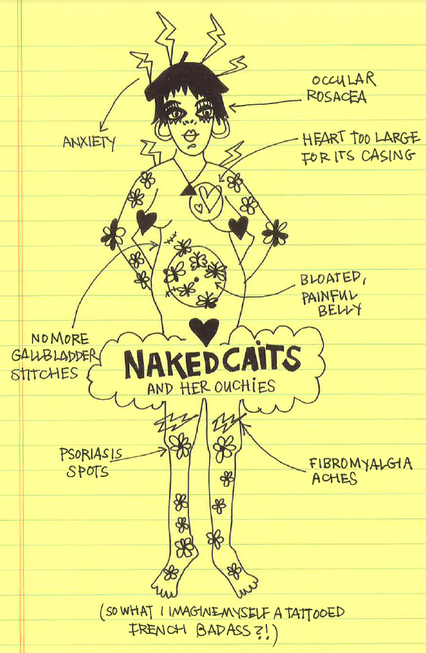 OCCULAR
ROSACEA
ANXIETY
HEART TOO LARGE
FOR ITS CASING
BLOATED,
PAINFUL
BELLY
NO MORE
GALLBLADDER
STITCHES
NAKED CAITS
AND HER OUCHIES
PSORIASIS
SPOTS
FIBROMYALGIA
ACHES
(SO WHAT I IMAGINE MYSELF A TATTOOED
FRENCH BADASS?!)